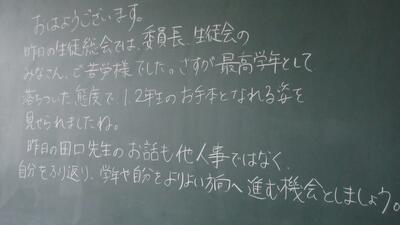 おはようございます。
昨日の生徒総会では、委員長、生徒会の
みなさん、ご苦労様でした。さすが最高学年として
落ちついた態度で、1.2年生のお手本となれる姿を
見せられましたね。
昨日の田口先生のお話も他人事ではなく、
自分をふり返り、学年や自分をよりよい方向へ進む機会としましょう。